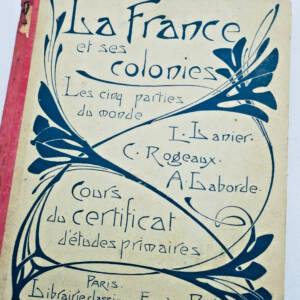 La France
et ses
colonies
Les cinq parties
du monde
L. Lanier.
C. Rogeaux.
A. Laborde.
Cours
du certificat
d'études primaires
PARIS.
Librairie classique